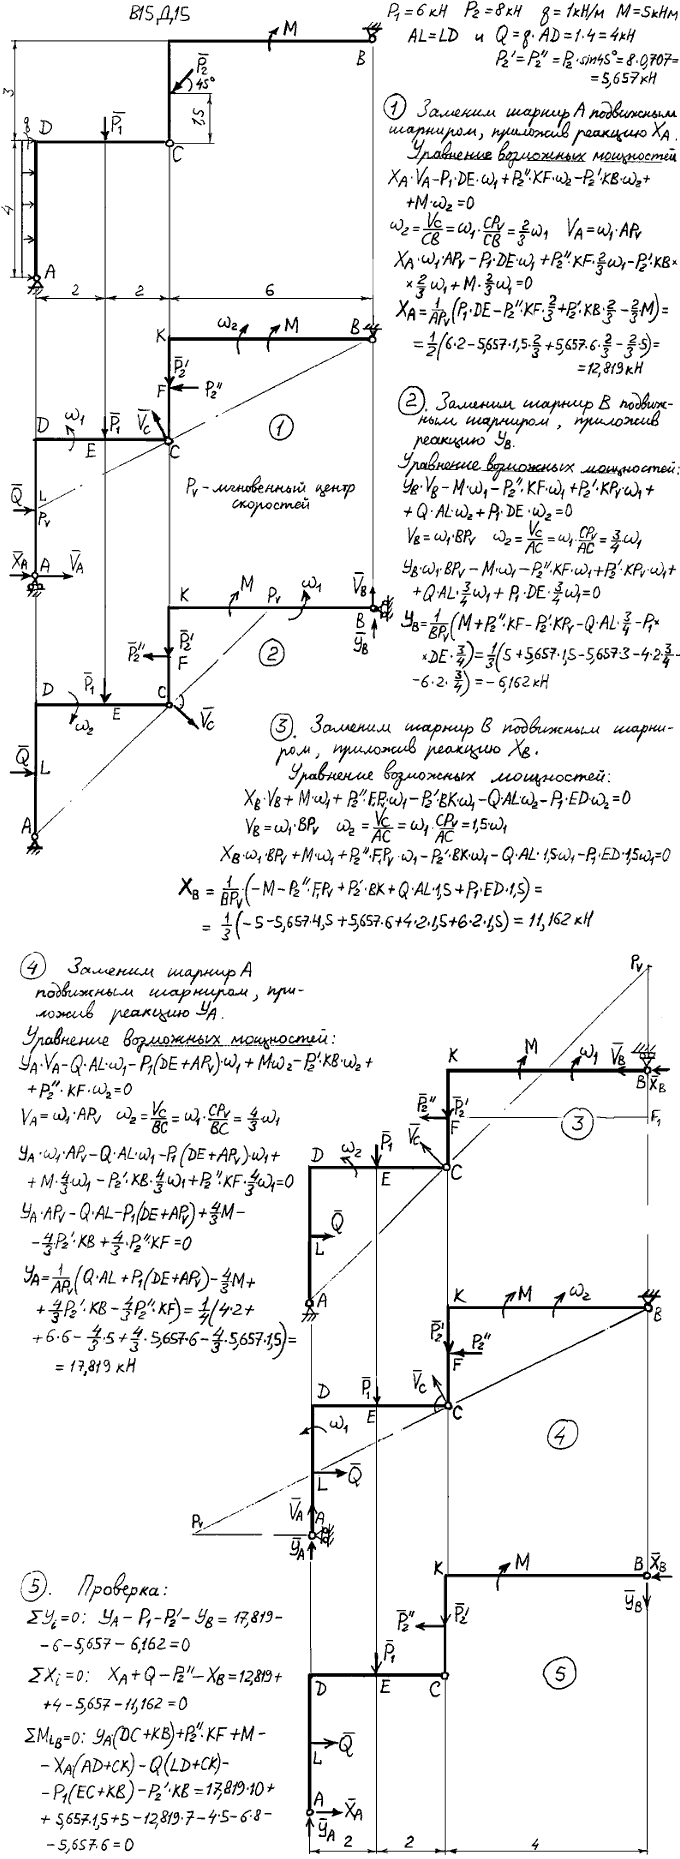 В15 Д15
P₁ = 6 кН  P₂ = 8 кН  q = 1 кН/м  M = 5 кНм
AL = LD и Q = q·AD = 1·4 = 4 кН
P₂' = P₂'' = P₂·sin45° = 8·0,707 =
= 5,657 кН
M
B
P̄₂
45°
3
1,5
q
D
P̄₁
C
4
A
2
2
6
① Заменим шарнир A подвижным
шарниром, приложив реакцию X_A.
Уравнение возможных мощностей
X_A·V_A − P₁·DE·ω₁ + P₂''·KF·ω₂ − P₂'·KB·ω₂ +
+ M·ω₂ = 0
ω₂ = V_C/CB = ω₁·CP_V/CB = 2/3 ω₁  V_A = ω₁·AP_V
X_A·ω₁·AP_V − P₁·DE·ω₁ + P₂''·KF·2/3 ω₁ − P₂'·KB×
× 2/3 ω₁ + M·2/3 ω₁ = 0
X_A = 1/AP_V (P₁·DE − P₂''·KF·2/3 + P₂'·KB·2/3 − 2/3·M) =
= 1/2 (6·2 − 5,657·1,5·2/3 + 5,657·6·2/3 − 2/3·5) =
= 12,819 кН
K
ω₂
M
B
P̄₂'
F
P₂''
D
ω₁
P̄₁
V̄_C
E
C
①
Q̄
L
P_V
P_V - мгновенный центр
скоростей
X̄_A
A
V̄_A
② . Заменим шарнир B подвиж-
ным шарниром, приложив
реакцию Y_B.
Уравнение возможных мощностей:
Y_B·V_B − M·ω₁ − P₂''·KF·ω₁ + P₂'·KP_V·ω₁ +
+ Q·AL·ω₂ + P₁·DE·ω₂ = 0
V_B = ω₁·BP_V  ω₂ = V_C/AC = ω₁·CP_V/AC = 3/4 ω₁
Y_B·ω₁·BP_V − M·ω₁ − P₂''·KF·ω₁ + P₂'·KP_V·ω₁ +
+ Q·AL·3/4 ω₁ + P₁·DE·3/4 ω₁ = 0
Y_B = 1/BP_V (M + P₂''·KF − P₂'·KP_V − Q·AL·3/4 − P₁×
× DE·3/4) = 1/3 (5 + 5,657·1,5 − 5,657·3 − 4·2·3/4 −
− 6·2·3/4) = −6,162 кН
K
M
P_V
ω₁
V̄_B
B
Ȳ_B
P̄₂''
P̄₂'
F
②
D
P̄₁
E
C
ω₂
V̄_C
Q̄
L
A
③. Заменим шарнир B подвижным шарни-
ром, приложив реакцию X_B.
Уравнение возможных мощностей:
X_B·V_B + M·ω₁ + P₂''·F₁P_V·ω₁ − P₂'·BK·ω₁ − Q·AL·ω₂ − P₁·ED·ω₂ = 0
V_B = ω₁·BP_V  ω₂ = V_C/AC = ω₁·CP_V/AC = 1,5ω₁
X_B·ω₁·BP_V + M·ω₁ + P₂''·F₁P_V·ω₁ − P₂'·BK·ω₁ − Q·AL·1,5ω₁ − P₁·ED·1,5ω₁ = 0
X_B = 1/BP_V·(−M − P₂''·F₁P_V + P₂'·BK + Q·AL·1,5 + P₁·ED·1,5) =
= 1/3 (−5 − 5,657·4,5 + 5,657·6 + 4·2·1,5 + 6·2·1,5) = 11,162 кН
④ Заменим шарнир A
подвижным шарниром, при-
ложив реакцию Y_A.
Уравнение возможных мощностей:
Y_A·V_A − Q·AL·ω₁ − P₁(DE + AP_V)·ω₁ + Mω₂ − P₂'·KB·ω₂ +
+ P₂''·KF·ω₂ = 0
V_A = ω₁·AP_V  ω₂ = V_C/BC = ω₁·CP_V/BC = 4/3 ω₁
Y_A·ω₁·AP_V − Q·AL·ω₁ − P₁·(DE + AP_V)·ω₁ +
+ M·4/3 ω₁ − P₂'·KB·4/3 ω₁ + P₂''·KF·4/3 ω₁ = 0
Y_A·AP_V − Q·AL − P₁(DE + AP_V) + 4/3 M −
− 4/3 P₂'·KB + 4/3·P₂''KF = 0
Y_A = 1/AP_V (Q·AL + P₁(DE + AP_V) − 4/3 M +
+ 4/3 P₂'·KB − 4/3 P₂''·KF) = 1/4 (4·2 +
+ 6·6 − 4/3·5 + 4/3·5,657·6 − 4/3·5,657·1,5) =
= 17,819 кН
P_V
K
M
ω₁
V̄_B
B
X̄_B
P̄₂''
P̄₂'
F
F₁
③
V̄_C
D
ω₂
P̄₁
E
C
Q̄
L
A
K
M
ω₂
B
P̄₂'
P₂''
F
D
P̄₁
V̄_C
E
C
ω₁
④
L
Q̄
P_V
V̄_A
A
Ȳ_A
⑤. Проверка:
ΣY_i = 0: Y_A − P₁ − P₂' − Y_B = 17,819 −
− 6 − 5,657 − 6,162 = 0
ΣX_i = 0: X_A + Q − P₂'' − X_B = 12,819 +
+ 4 − 5,657 − 11,162 = 0
ΣM_iB = 0: Y_A(DC + KB) + P₂''·KF + M −
− X_A(AD + CK) − Q(LD + CK) −
− P₁(EC + KB) − P₂'·KB = 17,819·10 +
+ 5,657·1,5 + 5 − 12,819·7 − 4·5 − 6·8 −
− 5,657·6 = 0
K
M
B
X̄_B
Ȳ_B
P̄₂''
P̄₂'
P̄₁
D
E
C
⑤
L
Q̄
A
X̄_A
Ȳ_A
2
2
4